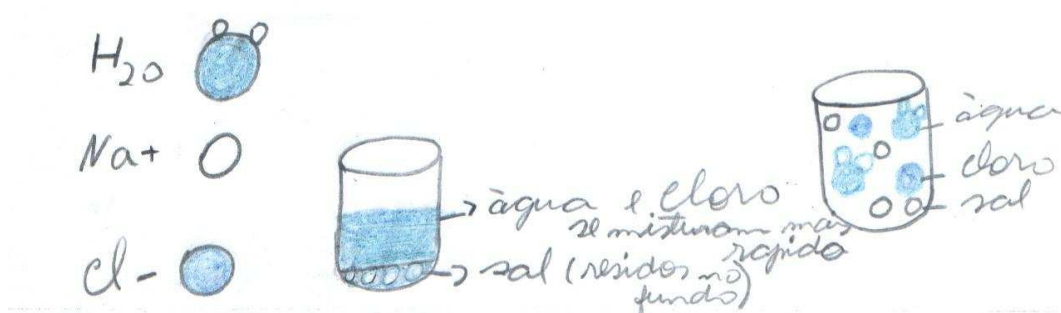 H2O
Na+
Cl-
àgua e cloro
se misturam mais
rapido
sal (residos no
fundo)
àgua
cloro
sal